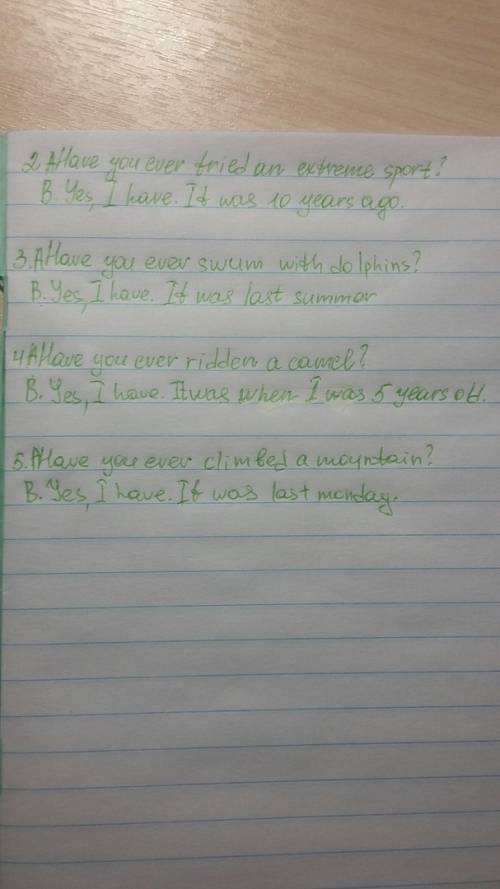 2 A Have you ever tried an extreme sport?
B. Yes, I have. It was 10 years ago.
3. A Have you ever swum with dolphins?
B. Yes, I have. It was last summer
4 A Have you ever ridden a camel?
B. Yes, I have. It was when I was 5 years old.
5. A Have you ever climbed a mountain?
B. Yes, I have. It was last monday.